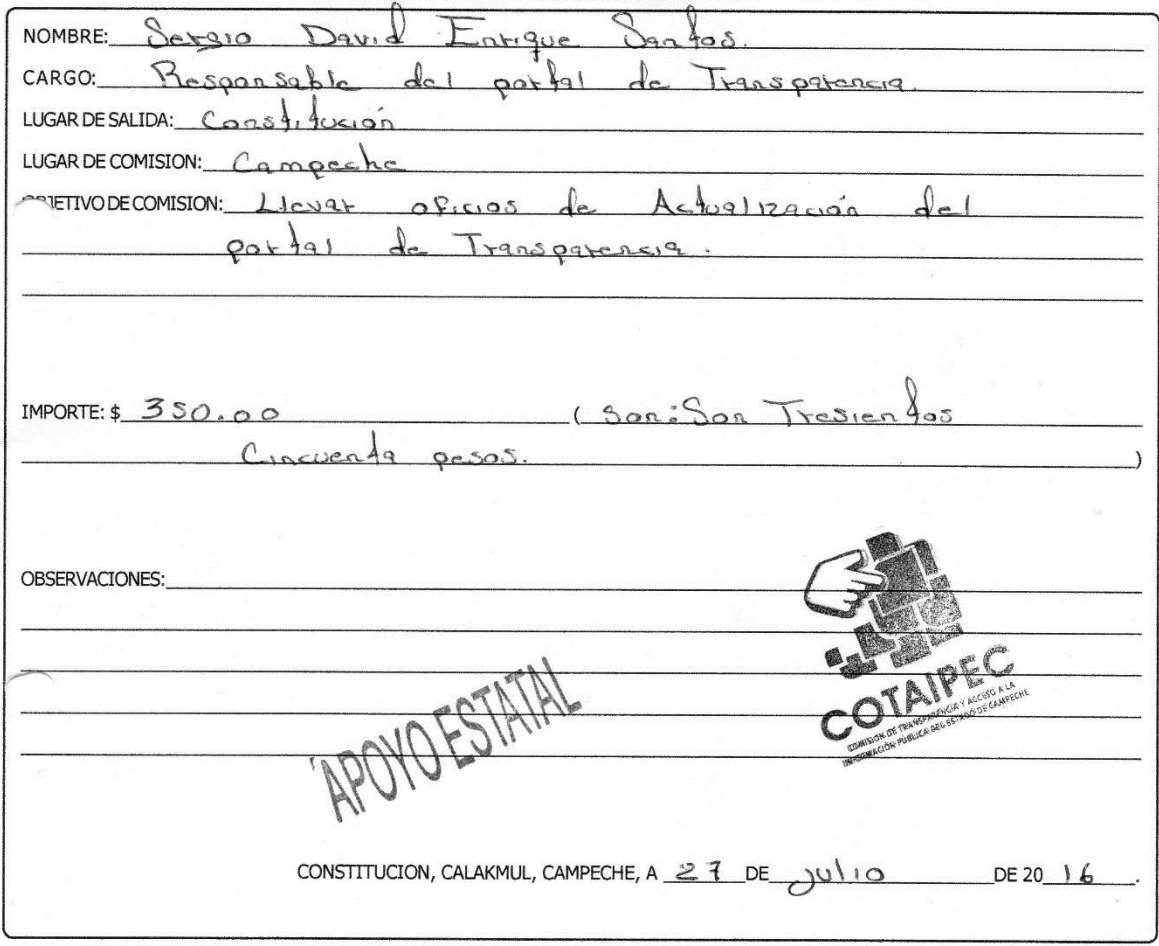 NOMBRE: Sergio David Enrique Santos.
CARGO: Responsable del portal de Transparencia.
LUGAR DE SALIDA: Constitución
LUGAR DE COMISION: Campeche
OBJETIVO DE COMISION: Llevar oficios de Actualización del
portal de Transparencia.
IMPORTE: $ 350.00 ( Son: Son Tresientos
Cincuenta pesos. )
OBSERVACIONES:
COTAIPEC
COMISIÓN DE TRANSPARENCIA Y ACCESO A LA
INFORMACIÓN PÚBLICA DEL ESTADO DE CAMPECHE
APOYO ESTATAL
CONSTITUCION, CALAKMUL, CAMPECHE, A 27 DE julio DE 20 16.